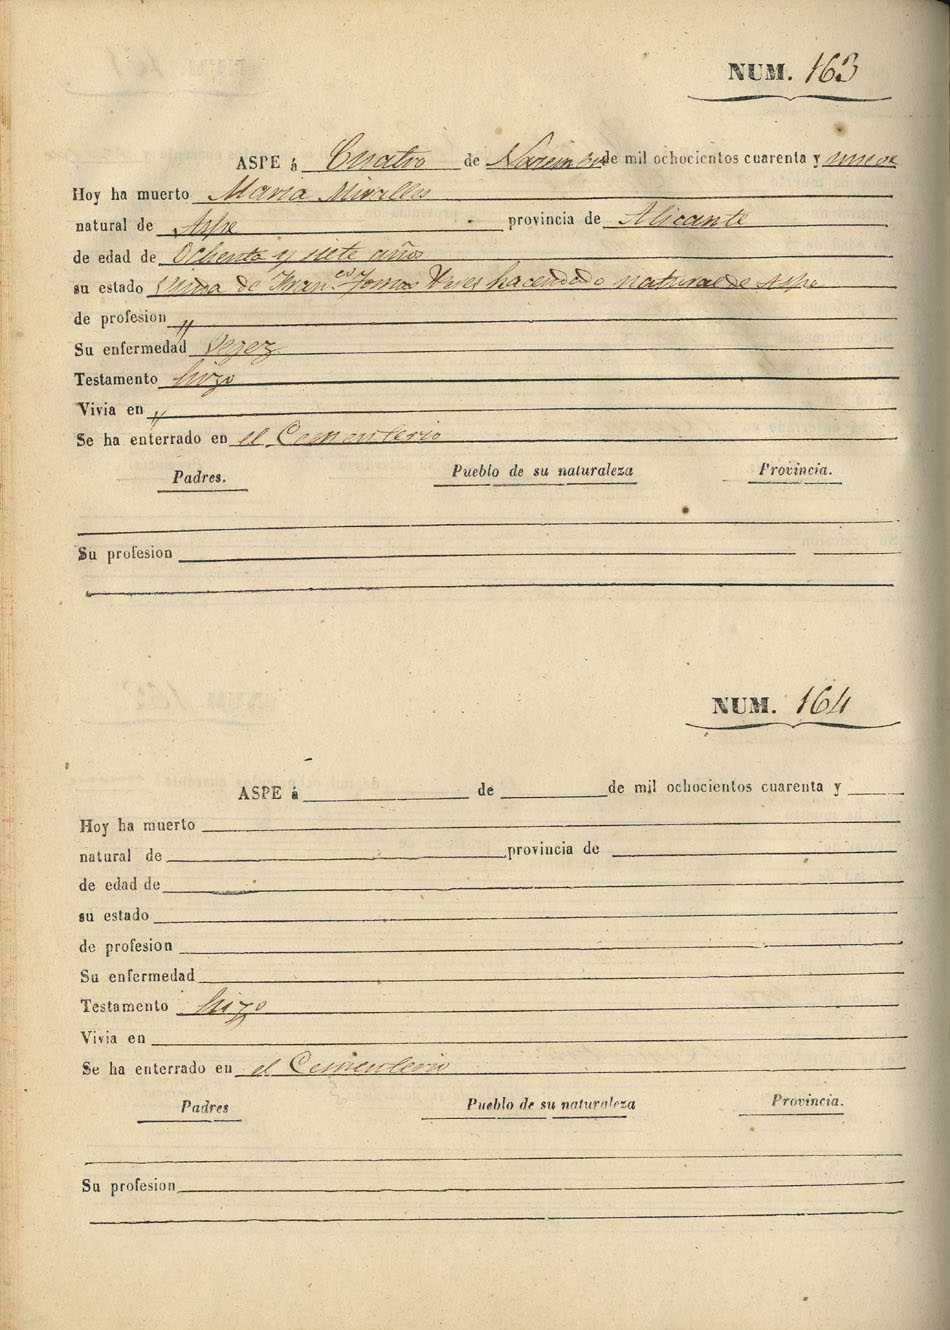 NUM. 163
ASPE á Cuatro de Noviembre de mil ochocientos cuarenta y nueve
Hoy ha muerto Maria Miralles
natural de Aspe provincia de Alicante
de edad de Ochenta y siete años
su estado Viuda de Fran.co Tomas hacendado natural de Aspe
de profesion "
Su enfermedad Vegez
Testamento hizo
Vivia en "
Se ha enterrado en el Cementerio
Padres. Pueblo de su naturaleza Provincia.
Su profesion
NUM. 164
ASPE á de de mil ochocientos cuarenta y
Hoy ha muerto
natural de provincia de
de edad de
su estado
de profesion
Su enfermedad
Testamento hizo
Vivia en
Se ha enterrado en el Cementerio
Padres Pueblo de su naturaleza Provincia.
Su profesion